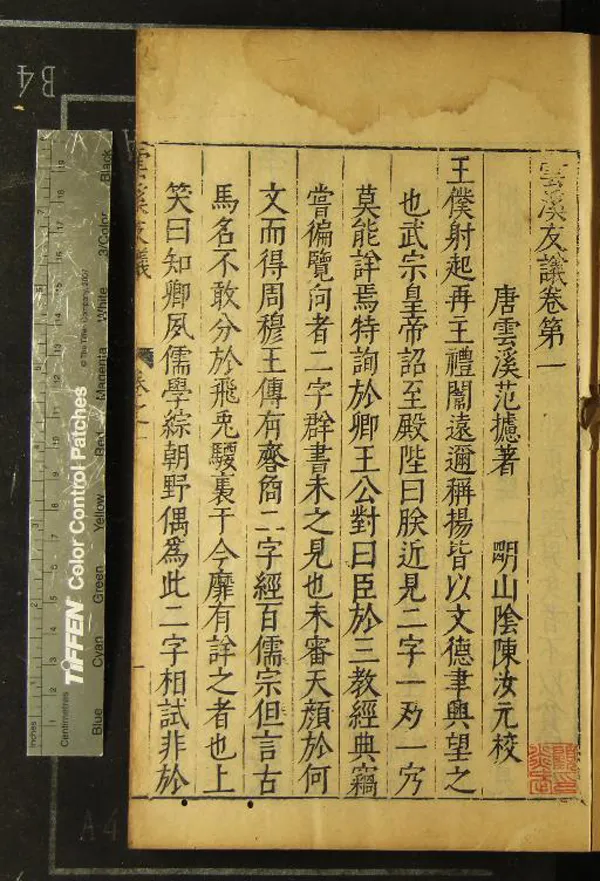 雲溪友議卷第一
唐雲溪范攄著 明山陰陳汝元校
王僕射起再王禮闈遠邇稱揚皆以文德聿興望之
也武宗皇帝詔至殿陛曰朕近見二字一一
莫能詳焉特詢於卿王公對曰臣於三教經典竊
嘗徧覽向者二字群書未之見也未審天顏於何
文而得周穆王傳有二字經百儒宗但言古
馬名不敢分於飛兔騕裏于今靡有詳之者也上
笑曰知卿夙儒學綜朝野偶爲此二字相試非於
雲溪友議 卷之一
B4
A4
TIFFEN Color Control Patches
© The Tiffen Company, 2007
Blue Cyan Green Yellow Red Magenta White 3/Color Black
Inches
Centimetres